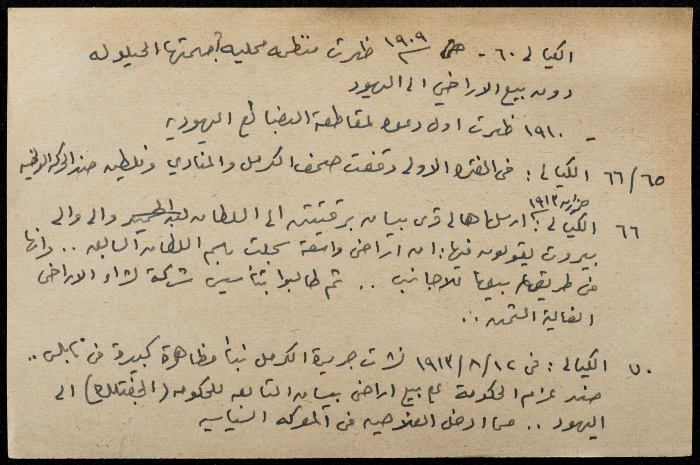 الكيالي ٦٠ - في ١٩٠٩ ظهرت منظمة محلية مهمتها الحيلولة
دون بيع الاراضي الى اليهود
- ١٩١٠ ظهرت اول دعوة لمقاطعة البضائع اليهودية
٦٦/٦٥ الكيالي : في الفترة الاولى وقفت صحف الكرمل والمنادي وفلسطين ضد الحركة
حزيران ١٩١٣
٦٦ الكيالي : ارسل اهالي قرى بيسان برقيتة الى السلطان والى والي
بيروت يقولون فيها : ان اراضي واسعة سجلت باسم السلطان السابق .. وانها
في طريقها بيعها للاجانب .. ثم طالبوا بتأسيس شركة لشراء الاراضي
الغالية الثمن ..
٧٠ الكيالي : في ١٢/٨/١٩١٣ نشرت جريدة الكرمل نبأ مظاهرة كبيرة في نابلس ..
ضد عزم الحكومة على بيع اراضي بيسان التابعة للحكومة (الجفتلك) الى
اليهود .. مما ادخل الفلاحين في المعركة السياسية